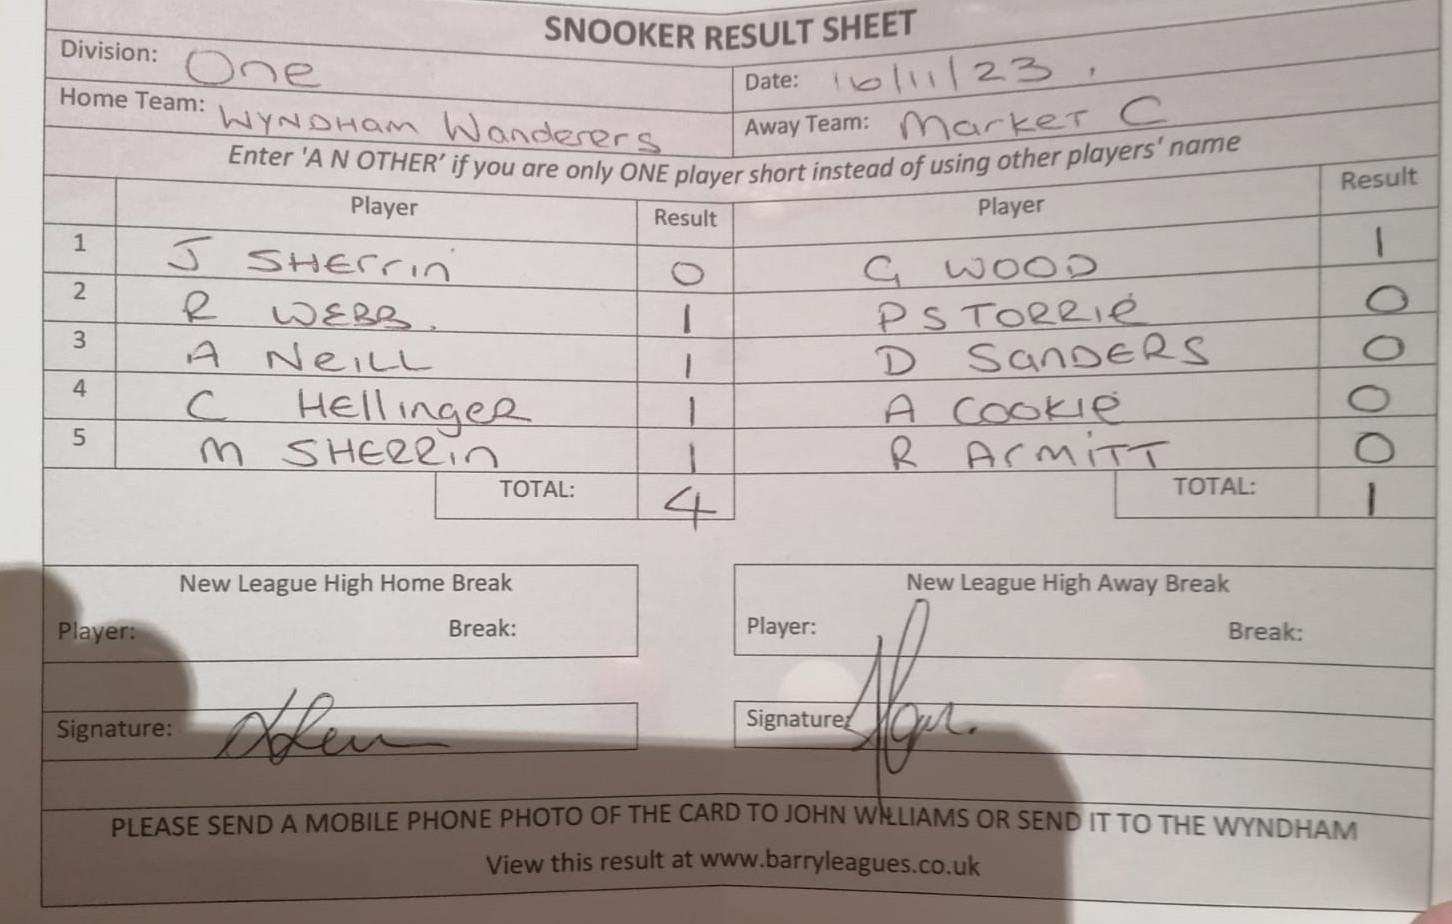 SNOOKER RESULT SHEET
Division: One Date: 16/11/23.
Home Team: WYNDHAM Wanderers Away Team: Market C
Enter 'A N OTHER' if you are only ONE player short instead of using other players' name
Player Result Player Result
1 J SHerrin 0 G WOOD 1
2 R WEBB. 1 P STORRIE 0
3 A NeILL 1 D SanDERS 0
4 C HEllingeR 1 A COOKIE 0
5 M SHERRin 1 R ArmiTT 0
TOTAL: 4 TOTAL: 1
New League High Home Break New League High Away Break
Player: Break: Player: Break:
Signature: Signature:
PLEASE SEND A MOBILE PHONE PHOTO OF THE CARD TO JOHN WILLIAMS OR SEND IT TO THE WYNDHAM
View this result at www.barryleagues.co.uk